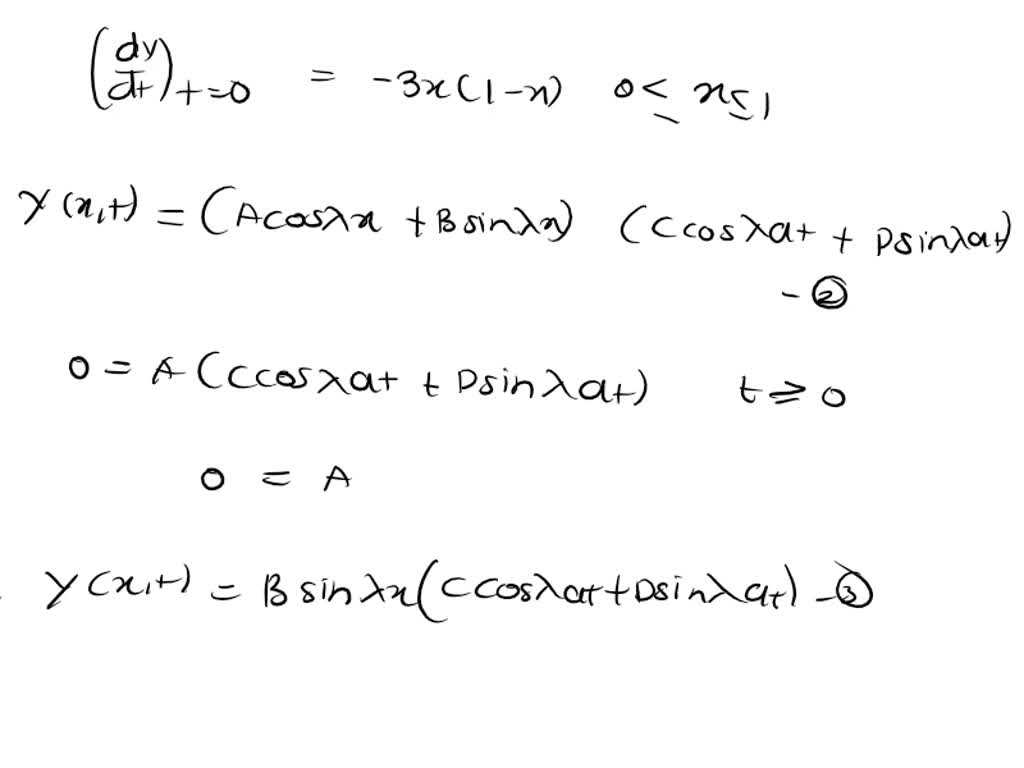 (dy/dt)t=0 = -3x(1-x) 0 ≤ x ≤ 1
y(x,t) = (A cosλx + B sinλx) (C cosλat + D sinλat)
- ②
0 = A (C cosλat + D sinλat) t ≥ 0
0 = A
y(x,t) = B sinλx (C cosλat + D sinλat) - ③